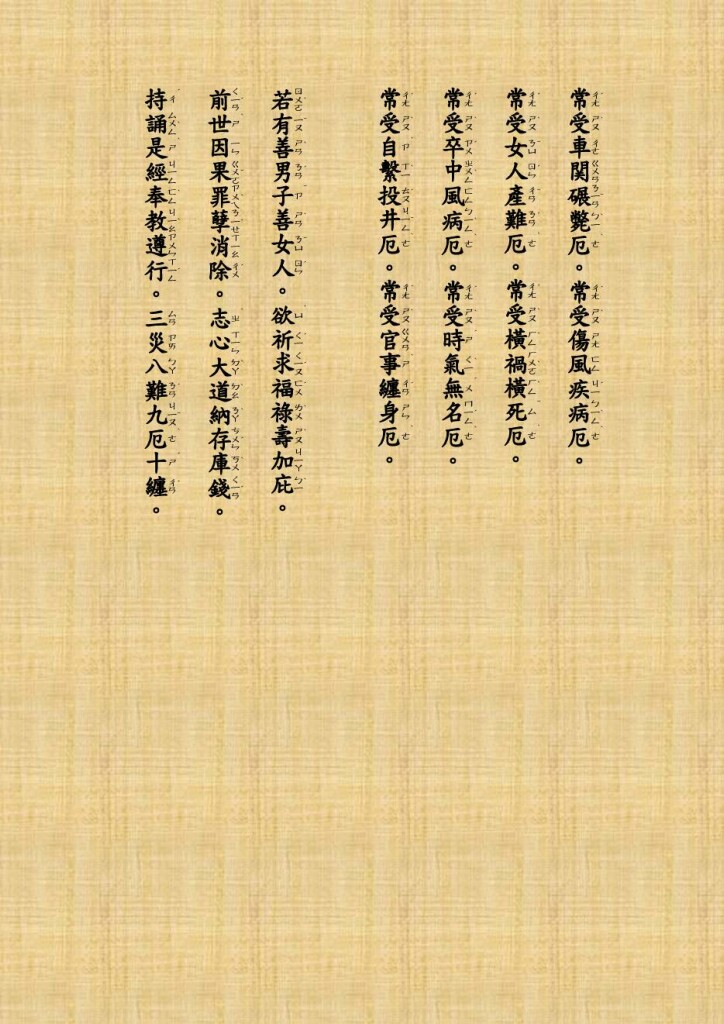 常受車關碾斃厄。常受傷風疾病厄。
常受女人產難厄。常受橫禍橫死厄。
常受卒中風病厄。常受時氣無名厄。
常受自繫投井厄。常受官事纏身厄。
若有善男子善女人。欲祈求福祿壽加庇。
前世因果罪孽消除。志心大道納存庫錢。
持誦是經奉教遵行。三災八難九厄十纏。